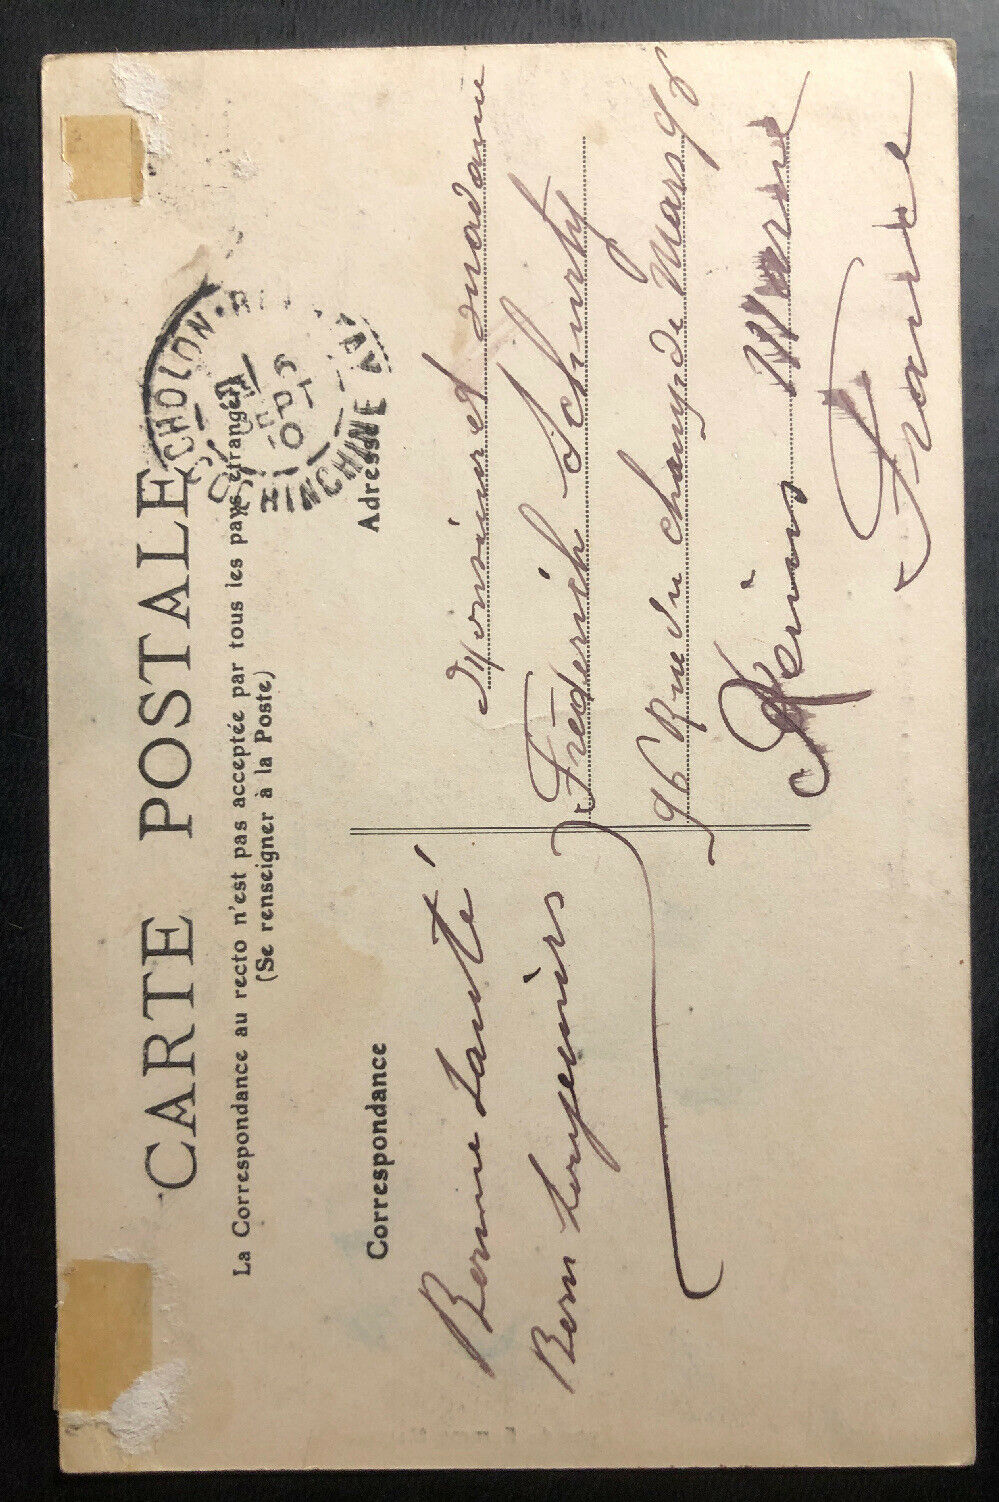 CARTE POSTALE
La Correspondance au recto n'est pas acceptée par tous les pays étrangers
(Se renseigner à la Poste)
CHOLON
HINCHINE
Correspondance
Bonne Santé
Bon
Adresse
Monsieur et Madame
Frédérich Schurty
96 Rue du champ de Mars 96
Reims Marne
France